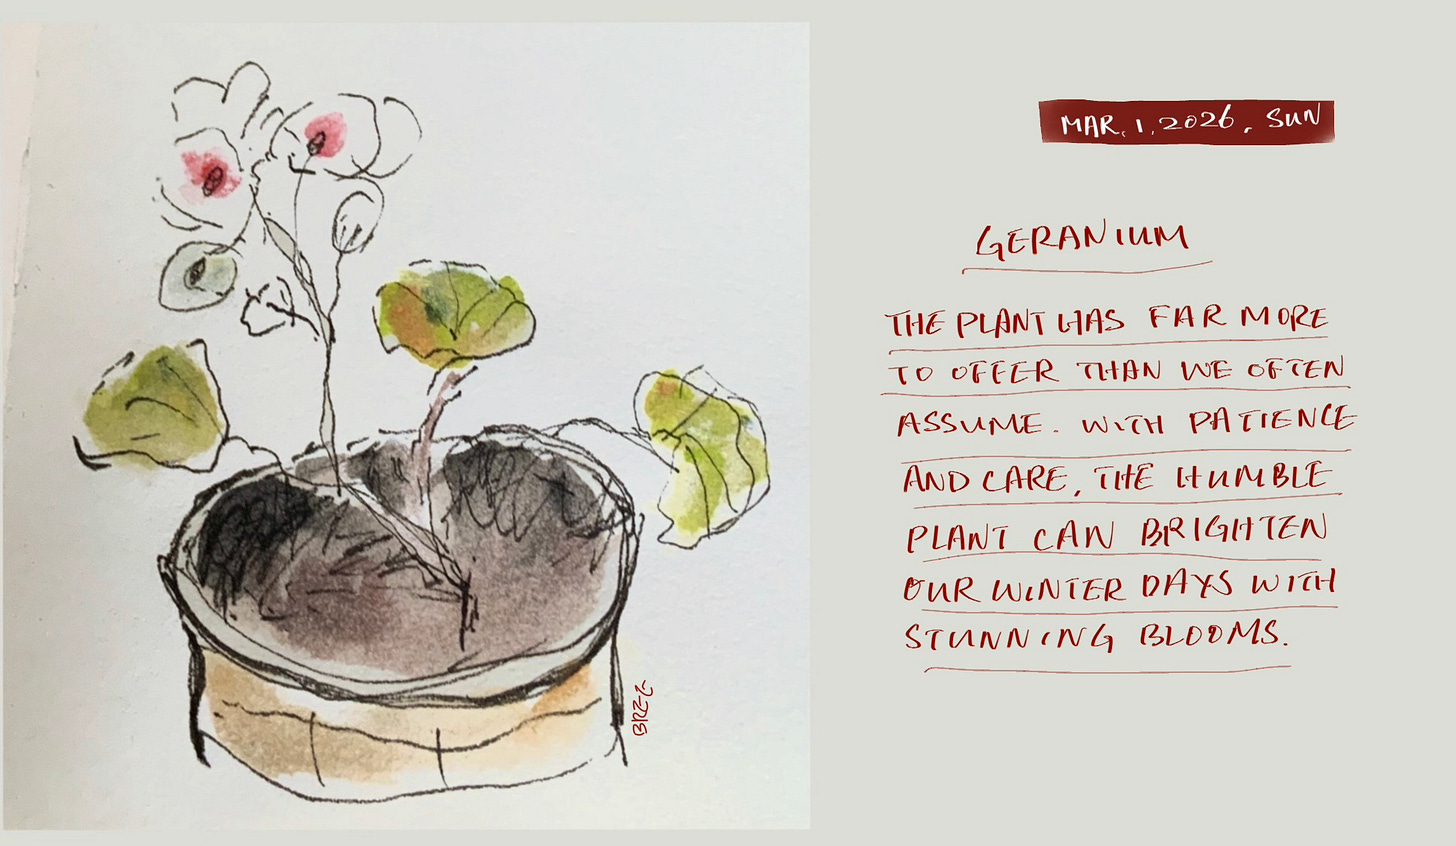 MAR. 1. 2026. SUN
GERANIUM
THE PLANT HAS FAR MORE
TO OFFER THAN WE OFTEN
ASSUME. WITH PATIENCE
AND CARE, THE HUMBLE
PLANT CAN BRIGHTEN
OUR WINTER DAYS WITH
STUNNING BLOOMS.